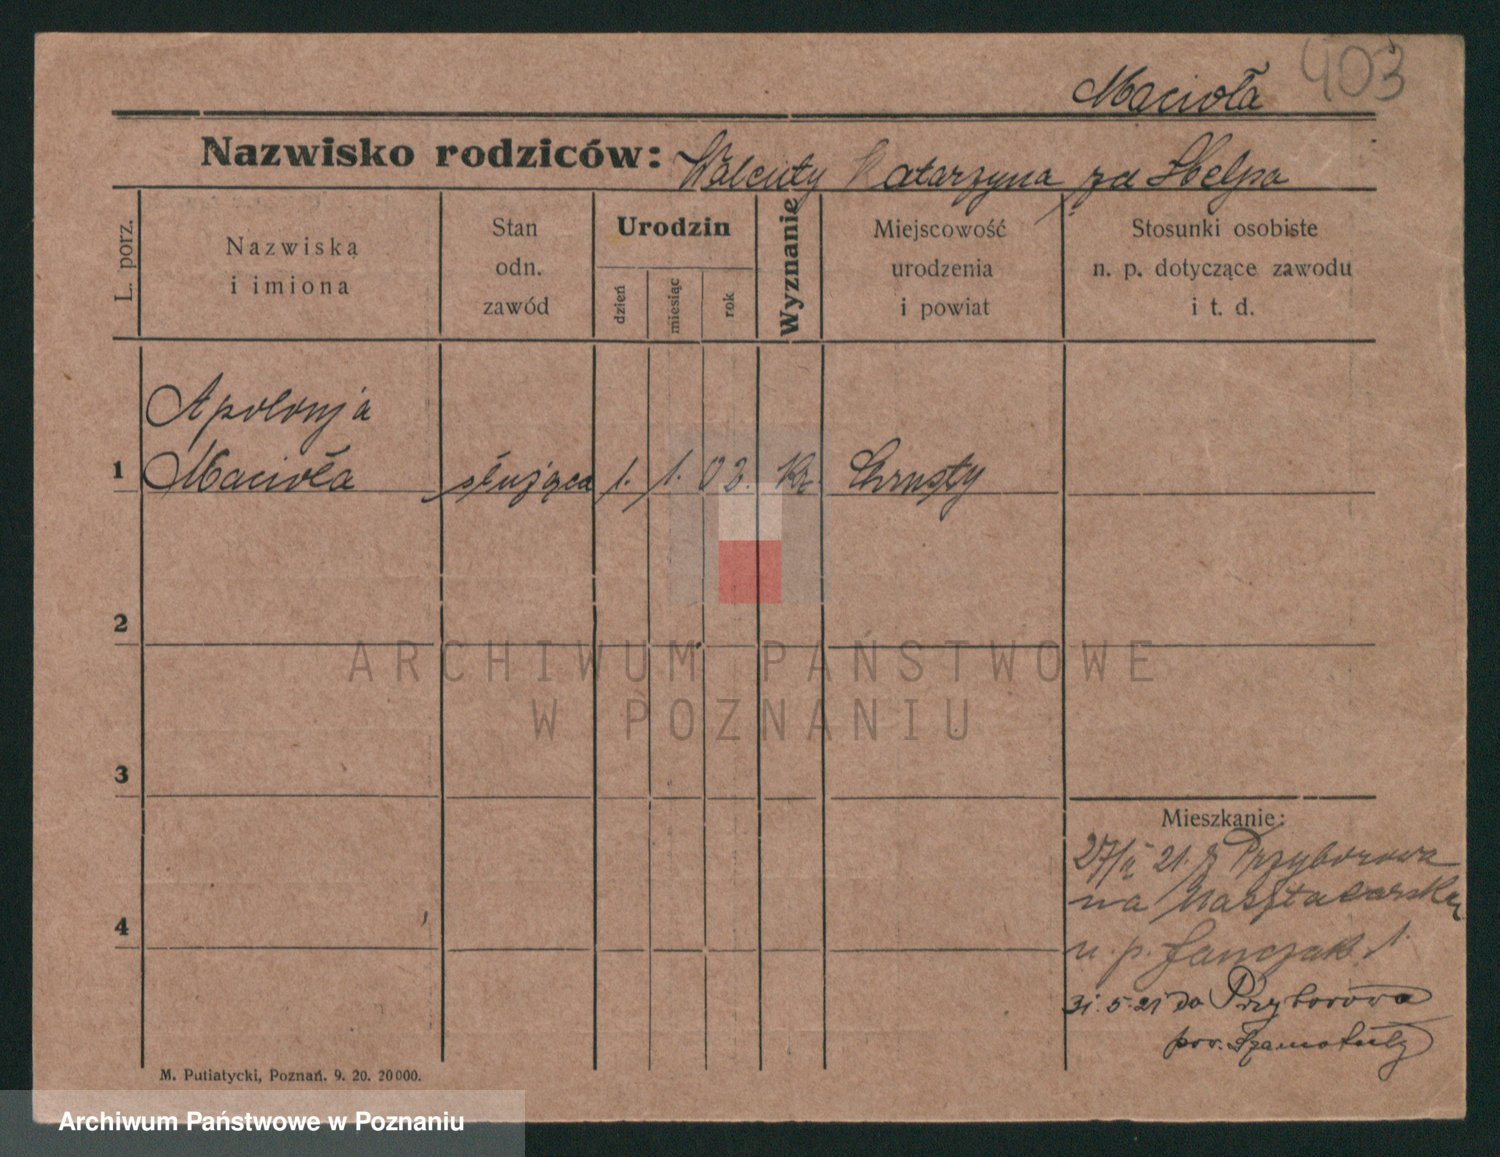 403
Macioła
Nazwisko rodziców: Walenty Katarzyna zd Skelpa
L. porz.
Nazwiska
i imiona
Stan
odn.
zawód
Urodzin
dzień
miesiąc
rok
Wyznanie
Miejscowość
urodzenia
i powiat
Stosunki osobiste
n. p. dotyczące zawodu
i t. d.
Apolonja
1 Macioła służąca 1. 1. 02. Kat Chrusty
2
ARCHIWUM PAŃSTWOWE
W POZNANIU
3
Mieszkanie:
27/V 21. z Przyborowa
na Masztalarską
u. p. Janczak 1.
4
31.5.21 do Przyborowa
pow. Szamotuły
M. Putiatycki, Poznań. 9. 20. 20000.
Archiwum Państwowe w Poznaniu